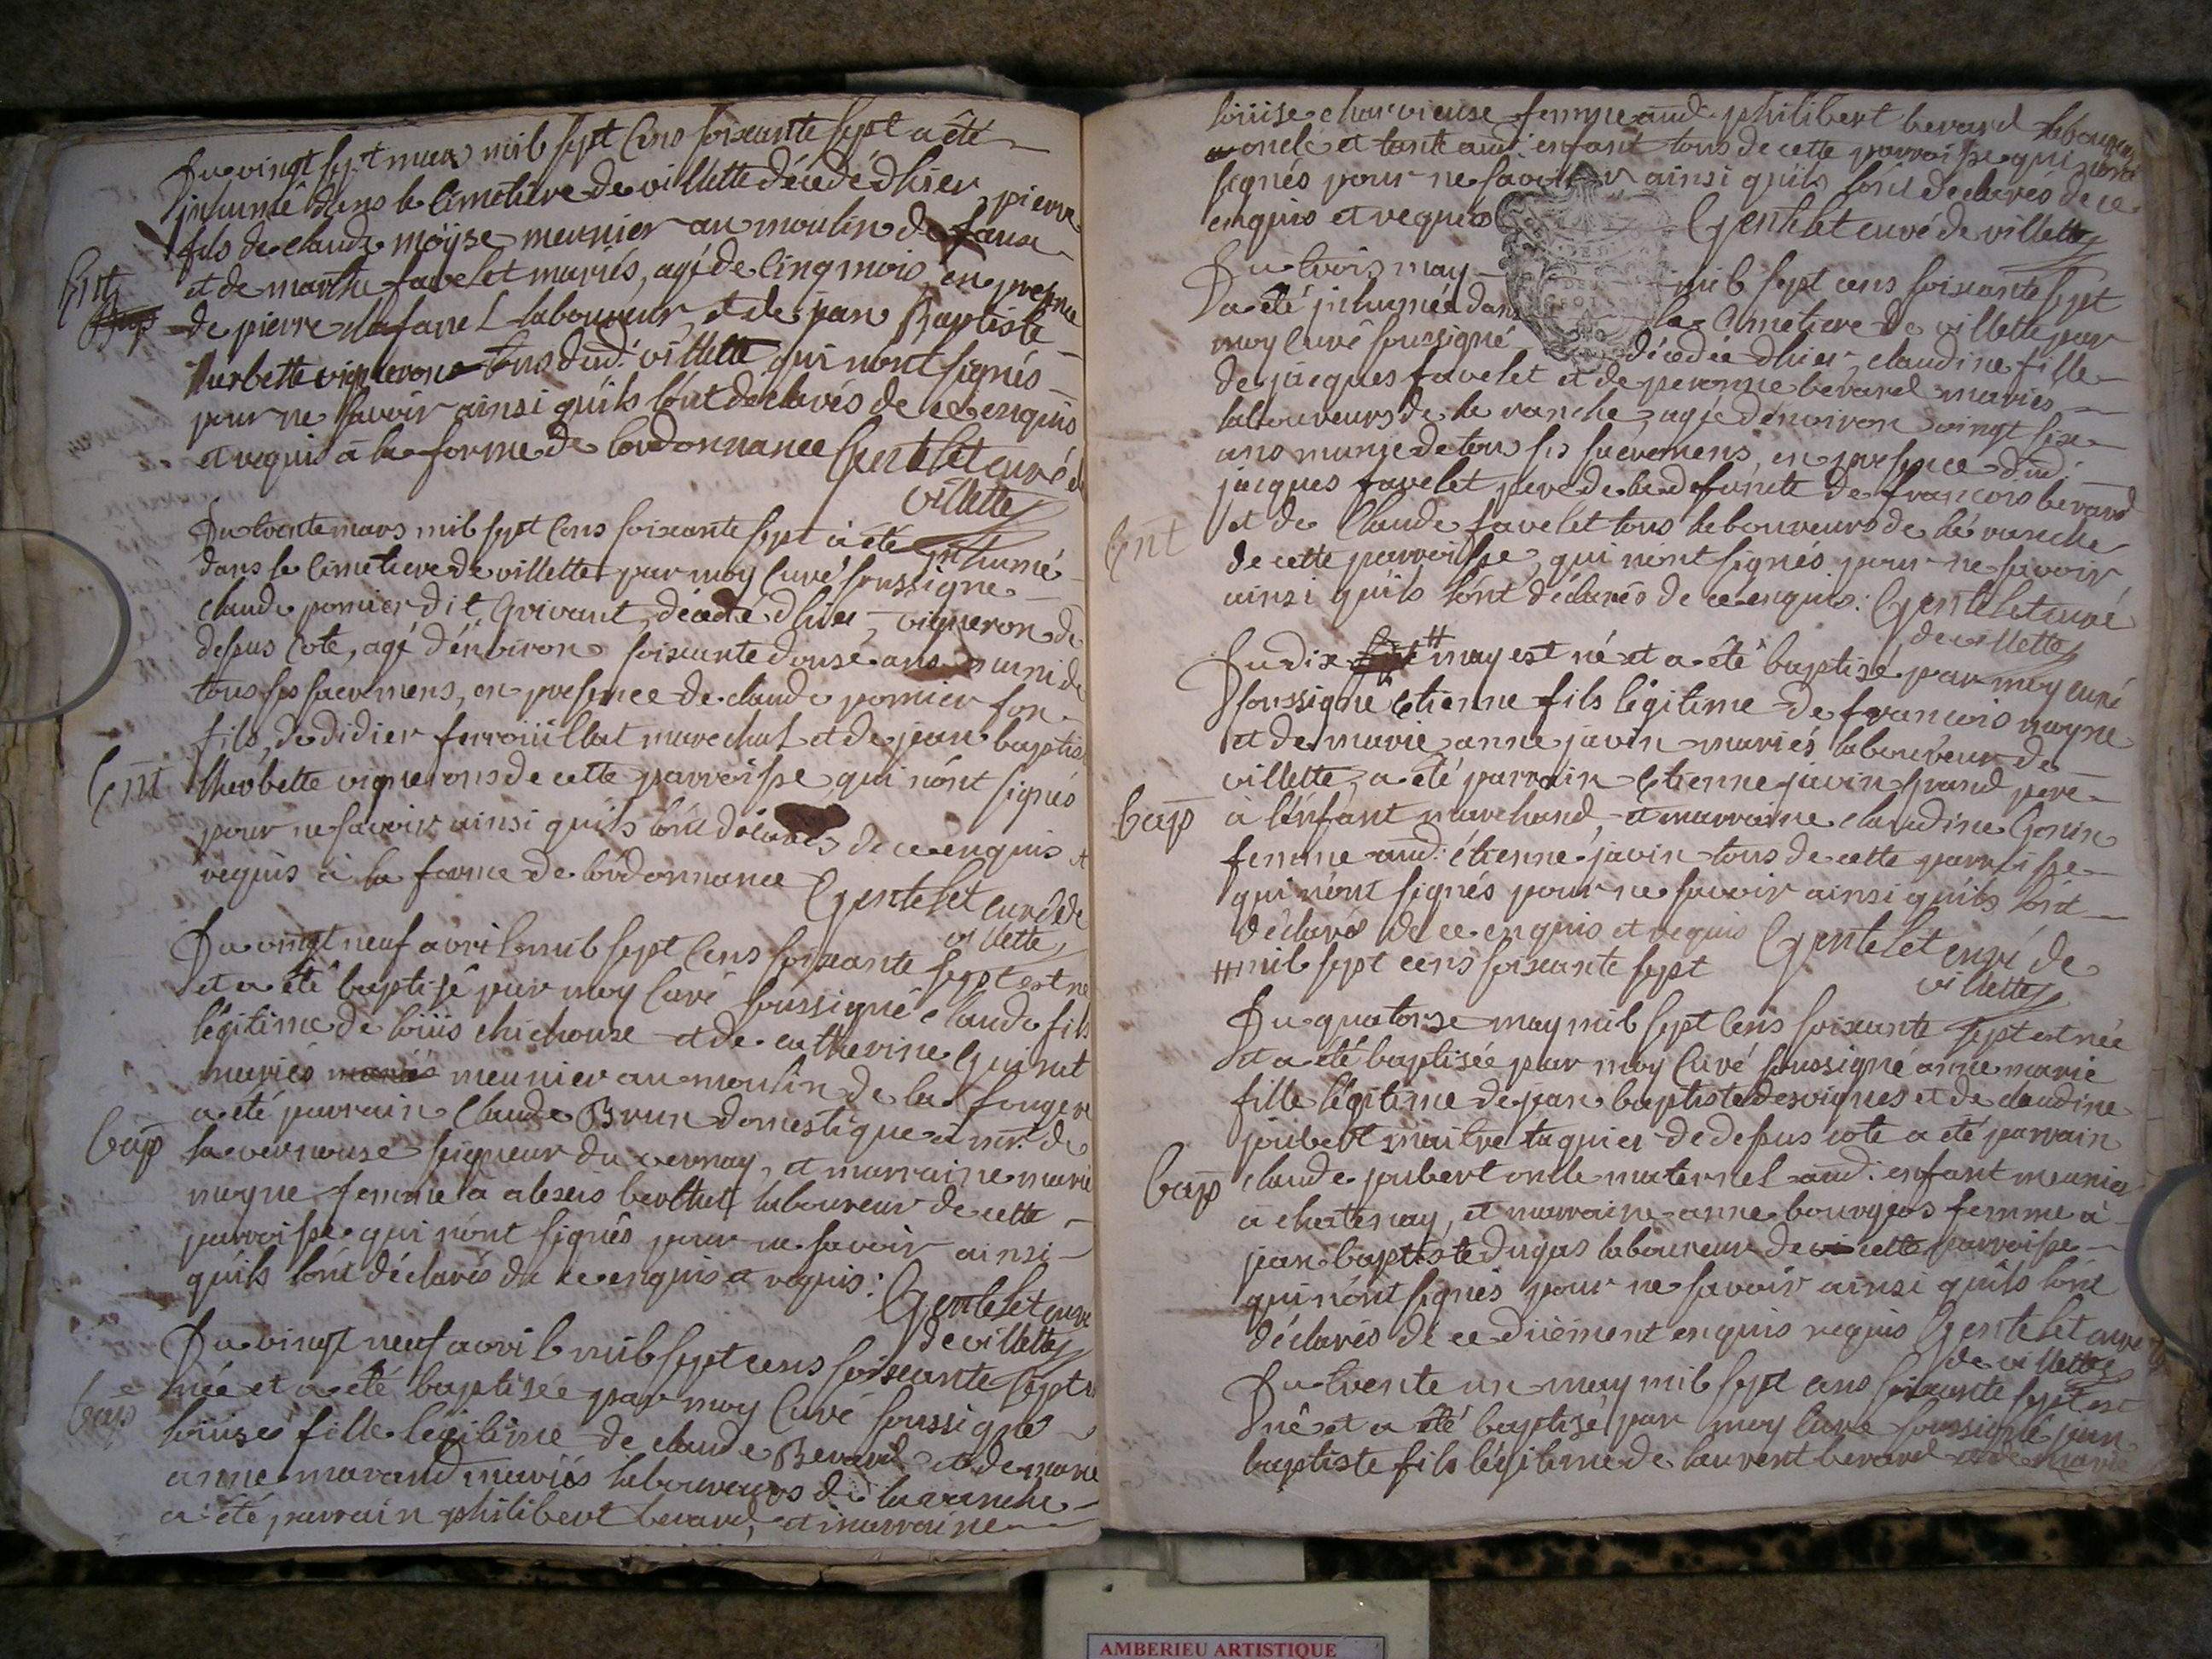 Du vingt sept mars mil sept cens soixante sept a été
inhumé dans le cimetiere de villette décedé dhier pierre
fils de claude moÿse meunier au moulin de
et de marthe favelet mariés, agé de cinq mois, en presence
Ent
de pierre chafanel laboureur et de jean Baptiste
vigneron tous dud: villette qui nont signés
pour ne savoir ainsi quils lont declarés de ce enquis
et requis a la forme de lordonnance Gentelet curé de
villette
Du trente mars mil sept cens soixante sept a été inhumé
dans le cimetiere de villette par moy curé soussigné
claude pomier dit décedé dhier, vigneron de
dessus cote, agé dénviron soixante douse ans muni de
tous ses sacremens, en presence de claude pomier son
fils, de didier ferroüillat marechal et de jean baptiste
Ent
vignerons de cette parroisse qui nónt signés
pour ne savoir ainsi quils lónt déclarés de ce enquis et
requis a la forme de lórdonnance Gentelet curé de
villette
Du vingt neuf avril mil sept cens soixante sept est né
et a été baptisé par moy curé soussigné claude fils
légitime de loüis chichoux et de catherine Guinet
mariés meunier au moulin de la fougere
a été parrain claude Brun domestique a mr. de
Bap
la verneuse seigneur du vernay, et marraine marie
moyne femme a alexis berthet laboureur de cette
parroisse qui nónt signés pour ne savoir ainsi
quils lónt déclarés de ce enquis et requis: Gentelet curé
de villette
Du vingt neuf avril mil sept cens soixante sept est
née et a été baptisée par moy curé soussigné
Bap
loüise fille légitime de claude Berard et de marie
anne marand mariés laboureurs de la ranche
a été parrain philibert berard, et marraine
loüise charvieuse femme aud: philibert berard laboureur
oncle et tante aud: enfant tous de cette parroisse qui nont
signés pour ne savoir ainsi quils lónt declarés de ce
enquis et requis Gentelet curé de villette
Du trois may mil sept cens soixante sept
a été inhumée dans le cimetiere de villette par
moy curé soussigné décedée dhier, claudine fille
de jacques favelet et de peronne berard mariés
laboureurs de la ranche, agée dénviron vingt six
ans munie de tous ses sacremens, en presence dud:
jacques favelet pere de lad: defuncte de francois berard
Ent
et de claude favelet tous laboureurs de la ranche
de cette parroisse, qui nont signés pour ne savoir
ainsi quils lónt déclarés de ce enquis: Gentelet curé
de villette
Du dix # may est né et a été baptisé par moy curé
soussigné etienne fils légitime de francois moyne
et de marie anne javin mariés laboureur de
villette, a été parrain etienne javin grand pere
Bap
a lénfant marchand, et marraine claudine Gonin
femme aud: étienne javin tous de cette parroisse
qui nónt signés pour ne savoir ainsi quils lónt
déclarés de ce enquis et requis Gentelet curé de
villette
# mil sept cens soixante sept
Du quatorse may mil sept cens soixante sept est née
et a été baptisée par moy curé soussigné anne marie
fille légitime de jean baptiste desvignes et de claudine
joubert maitre taquier de dessus cote a été parrain
Bap
claude joubert oncle maternel aud: enfant meunier
a chatenay, et marraine anne bourgeos femme a
jean baptiste dugas laboureur de cette parroisse
qui nónt signés pour ne savoir ainsi quils lónt
déclarés de ce düement enquis requis Gentelet curé
de villette
Du trente un may mil sept cens soixante sept est
né et a été baptisé par moy curé soussigné jean
baptiste fils légitime de laurent berard et de marie
AMBERIEU ARTISTIQUE